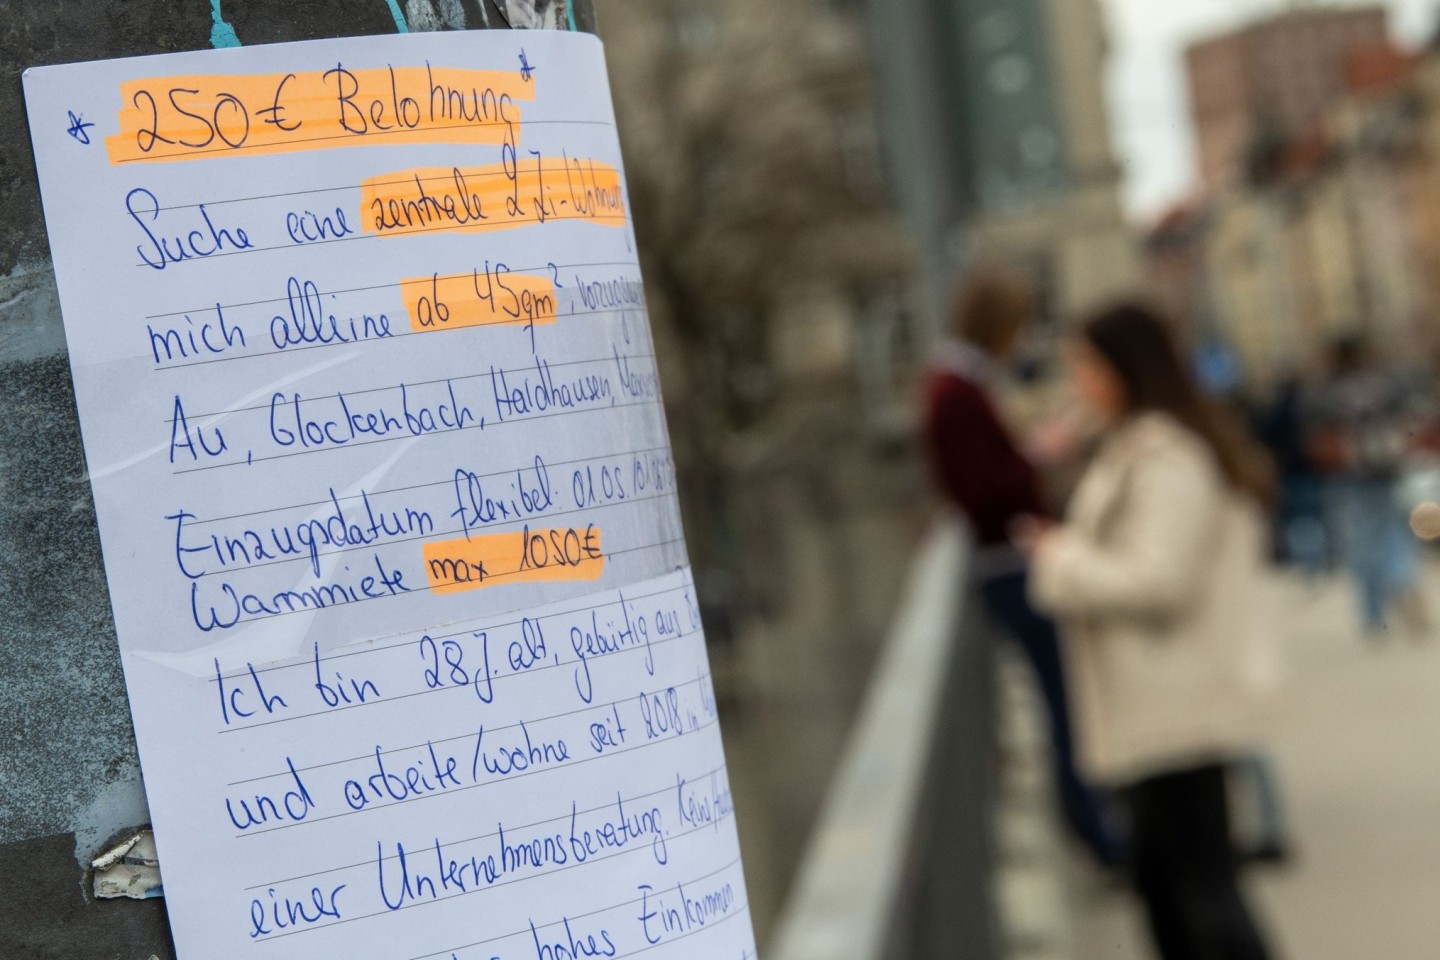 * 250€ Belohnung *
Suche eine zentrale 2 Zi-Wohnung
mich alleine ab 45qm²,
Au, Glockenbach, Haidhausen,
Einzugsdatum flexibel: 01.05.
Warmmiete max 1050€.
Ich bin 28 J. alt, gebürtig aus
und arbeite/wohne seit 2018 in
einer Unternehmensberatung. Keine
hohes Einkommen